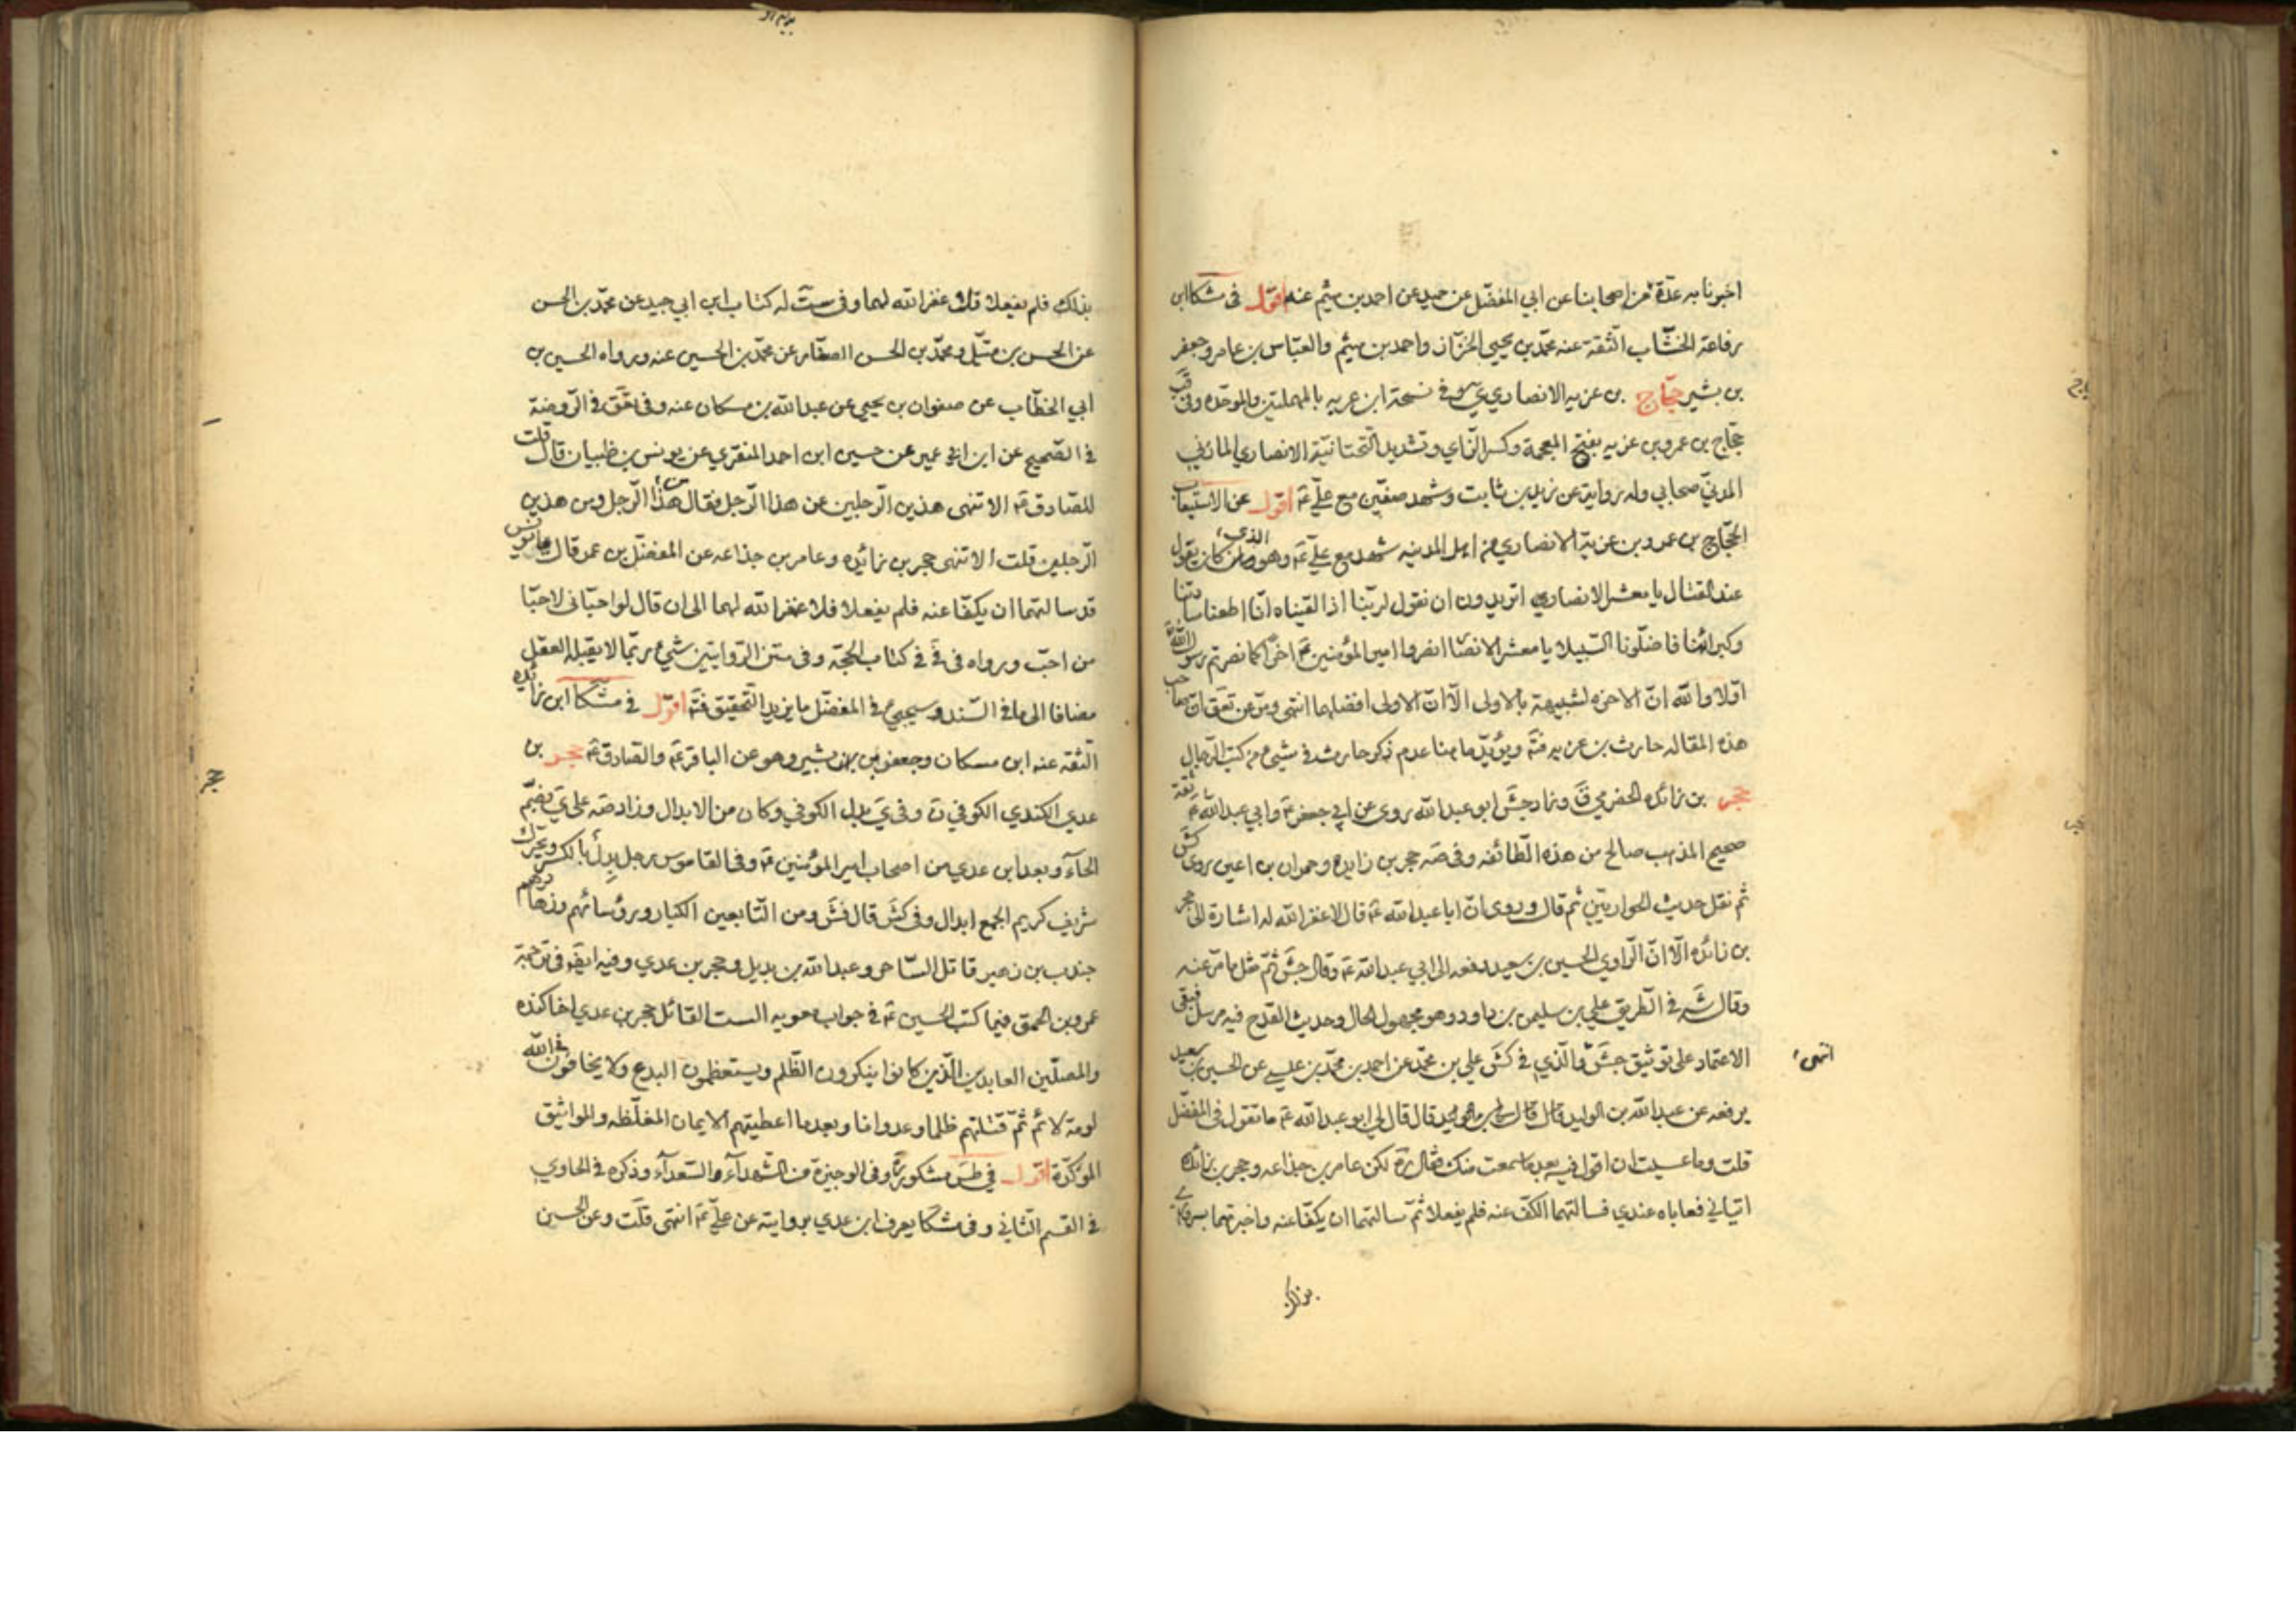 اخبرنا به عدّة من اصحابنا عن ابي المفضّل عن حميد عن احمد بن ميثم عنه اقول في مشكا ابن
رفاعة الخشّاب الثّقة عنه محمّد بن يحيى الخزّاز واحمد بن ميثم والعبّاس بن عامر وجعفر
بن بشير حجّاج بن عزيه الانصاري ي وفي نسخة ابن عربه بالمهملتين والموحّده وفي قب
حجّاج بن عمرو بن عزيه بفتح المعجمة وكسر الزّاي وتشديد التّحتانيّة الانصاري المازني
المدنيّ صحابي وله رواية عن زيد بن ثابت وشهد صفّين مع عليّ عَ اقول عن الاستيعاب
الحجّاج بن عمرو بن عزية الانصاري من اهل المدينه شهد مع عليّ عَ وهو الذي كان يقول
عند القتال يا معشر الانصار اتريدون ان نقول لربّنا اذا لقيناه انّا اطعنا ساداتنا
وكبرائنا فاضلّونا السّبيلا يا معشر الانصار انصروا امير المؤمنين عَ اخراً كما نصرتم رسول اللّه
اوّلا واللّه انّ الاخره لشبيهة بالاولى الّا انّ الاولى افضلهما انتهى ومرّ عن تعق انّ صاحب
هذه المقاله حارث بن عزيه فتَه ويؤيّد ما هنا عدم ذكر حارث في شيء من كتب الرّجال
حجر بن زائده الحضرمي قَ وزاد جش ابو عبد اللّه روى عن ابي جعفر عَ وابي عبد اللّه عَ ثقة
صحيح المذهب صالح من هذه الطّائفه وفي صَه حجر بن زايده وحمران بن اعين روى كش
ثم نقل حديث الحواريّين ثم قال وروى انّ ابا عبد اللّه عَ قال لا غفر اللّه له اشارة الى حجر
بن زائده الّا انّ الرّاوي الحسين بن سعيد رفعه الى ابي عبد اللّه عَ وقال جش ثمّ مثل ما مرّ عنه
وقال شَه في الطّريق علي بن سليمن بن داود وهو مجهول الحال وحديث القدح فيه مرسل فبقي
الاعتماد على توثيق جش والّذي في كش علي بن محمّد عن احمد بن محمّد بن عيسى عن الحسين بن سعيد
انتهى
يرفعه عن عبد اللّه بن الوليد قال قال لي ابو عبد اللّه عَ ما تقول في المفضّل
قلت وما عسيت ان اقول فيه بعد ما سمعت منك فقال رَه لكن عامر بن جذاعه وحجر بن زائده
اتياني فعاباه عندي فسالتهما الكفّ عنه فلم يفعلا ثمّ سالتهما ان يكفّا عنه واخبرتهما بسروري
بذلك
بذلك فلم يفعلا فلا غفر اللّه لهما وفي ست له كتاب ابن ابي جيد عن محمّد بن الحسن
عن الحسن بن متّيل ومحمّد بن الحسن الصفّار عن محمّد بن الحسين عنه ورواه الحسين بن
ابي الخطّاب عن صفوان بن يحيى عن عبد اللّه بن مسكان عنه وفي تعق في الرّوضة
في الصّحيح عن ابن ابي عمير عن حسين ابن احمد المنقري عن يونس بن ظبيان قال قلت
للصّادق عَ الا تنهى هذين الرّجلين عن هذا الرّجل فقال من هذا الرّجل ومن هذين
الرّجلين قلت الا تنهى حجر بن زائده وعامر بن جذاعه عن المفضّل بن عمر قال يا يونس
قد سالتهما ان يكفّا عنه فلم يفعلا فلا غفر اللّه لهما الى ان قال لو احبّاني لاحبّا
من احبّ ورواه في في في كتاب الحجّة وفي متن الرّوايتين شيء ربّما لا يقبله العقل
مضافا الى ما في السّند وسيجيء في المفضّل ما يزيد التّحقيق فتَه اقول في مشكا ابن زائده
الثقه عنه ابن مسكان وجعفر بن بشير وهو عن الباقر عَ والصّادق عَ حجر بن
عدي الكندي الكوفي نَ وفي يَ بدل الكوفي وكان من الابدال وزاد صَه على يَ بضمّ
الحاء وبعد ابن عدي من اصحاب امير المؤمنين عَ وفي القاموس رجل بدل بالكسر ويحرّك
شريف كريم الجمع ابدال وفي كش قال فش ومن التّابعين الكبار ورؤسائهم وزهّادهم
جندب بن زهير قاتل السّاحر وعبد اللّه بن بديل وحجر بن عدي وفيه ايضا في ترجمة
عمرو بن الحمق فيما كتب الحسين عَ في جواب معويه الست القائل حجر بن عدي اخا كنده
حجر
والمصلّين العابدين الّذين كانوا ينكرون الظّلم ويستعظمون البدع ولا يخافون في اللّه
لومة لائم ثمّ قتلتهم ظلما وعدوانا وبعد ما اعطيتهم الايمان المغلّظه والمواثيق
المؤكّدة اقول في طس مشكور وفي الوجيزة من الشّهداء والسّعداء وذكره في الحاوي
في القسم الثّاني وفي مشكا يعرف ابن عدي بروايته عن عليّ عَ انتهى قلت وعن الحسين